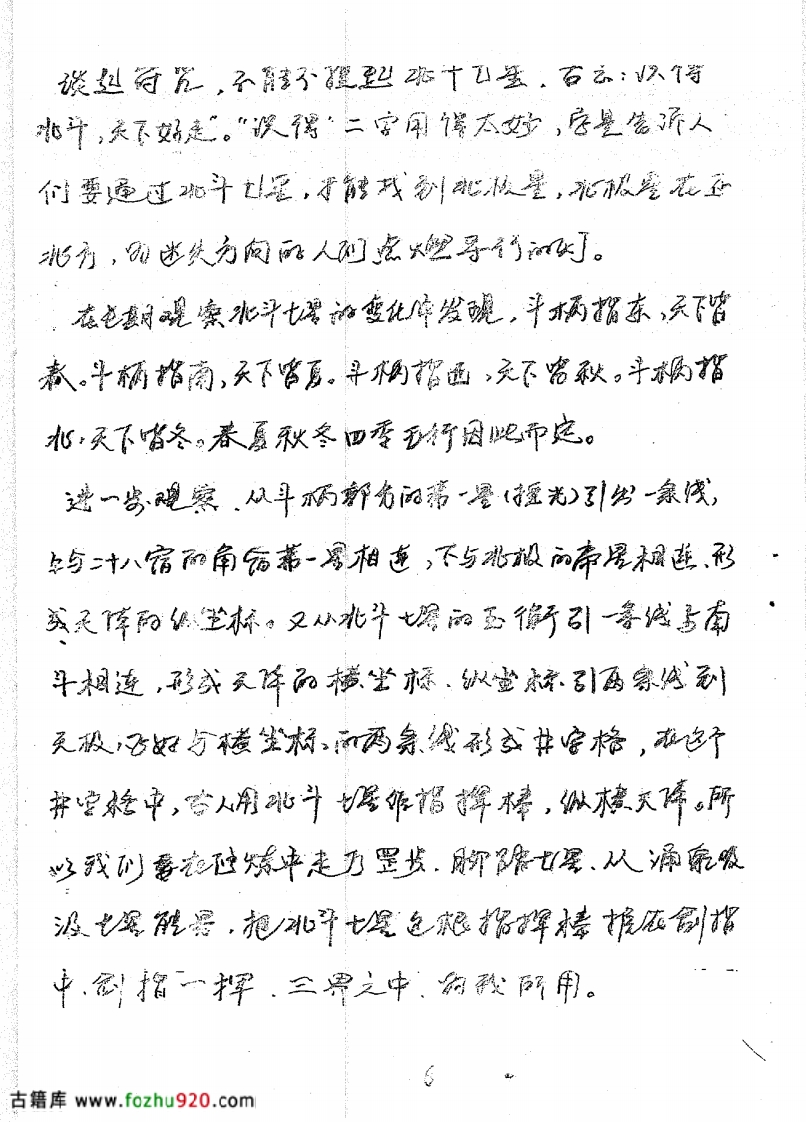 谈起符咒，不能不提到北斗七星．古云：识得
北斗，天下好走”。“识得”二字用得太妙，字是告诉人
们要通过北斗七星，才能找到北极星，北极星在正
北方，为迷失方向的人们点燃导行的灯。
在长期观察北斗七星的变化中发现，斗柄指东，天下皆
春。斗柄指南，天下皆夏。斗柄指西，天下皆秋。斗柄指
北，天下皆冬。春夏秋冬四季五行因此而定。
进一步观察．从斗柄部分的第一星(摇光)引出一条线，
上与二十八宿的角宿第一星相连，下与北极的帝星相连．形
成天阵的纵坐标。又从北斗七星的玉衡引一条线与南
斗相连，形成天阵的横坐标．纵坐标引两条线到
天极，正好与横坐标．的两条线形成井字格，在这个
井字格中，古人用北斗七星作指挥棒，纵横天阵。所
以我们要在修炼中走乃罡步．脚踏七星．从涌泉吸
汲七星能量．把北斗七星这根指挥棒握在剑指
中．剑指一挥．三界之中．为我所用。
6
古籍库 www.fozhu920.com